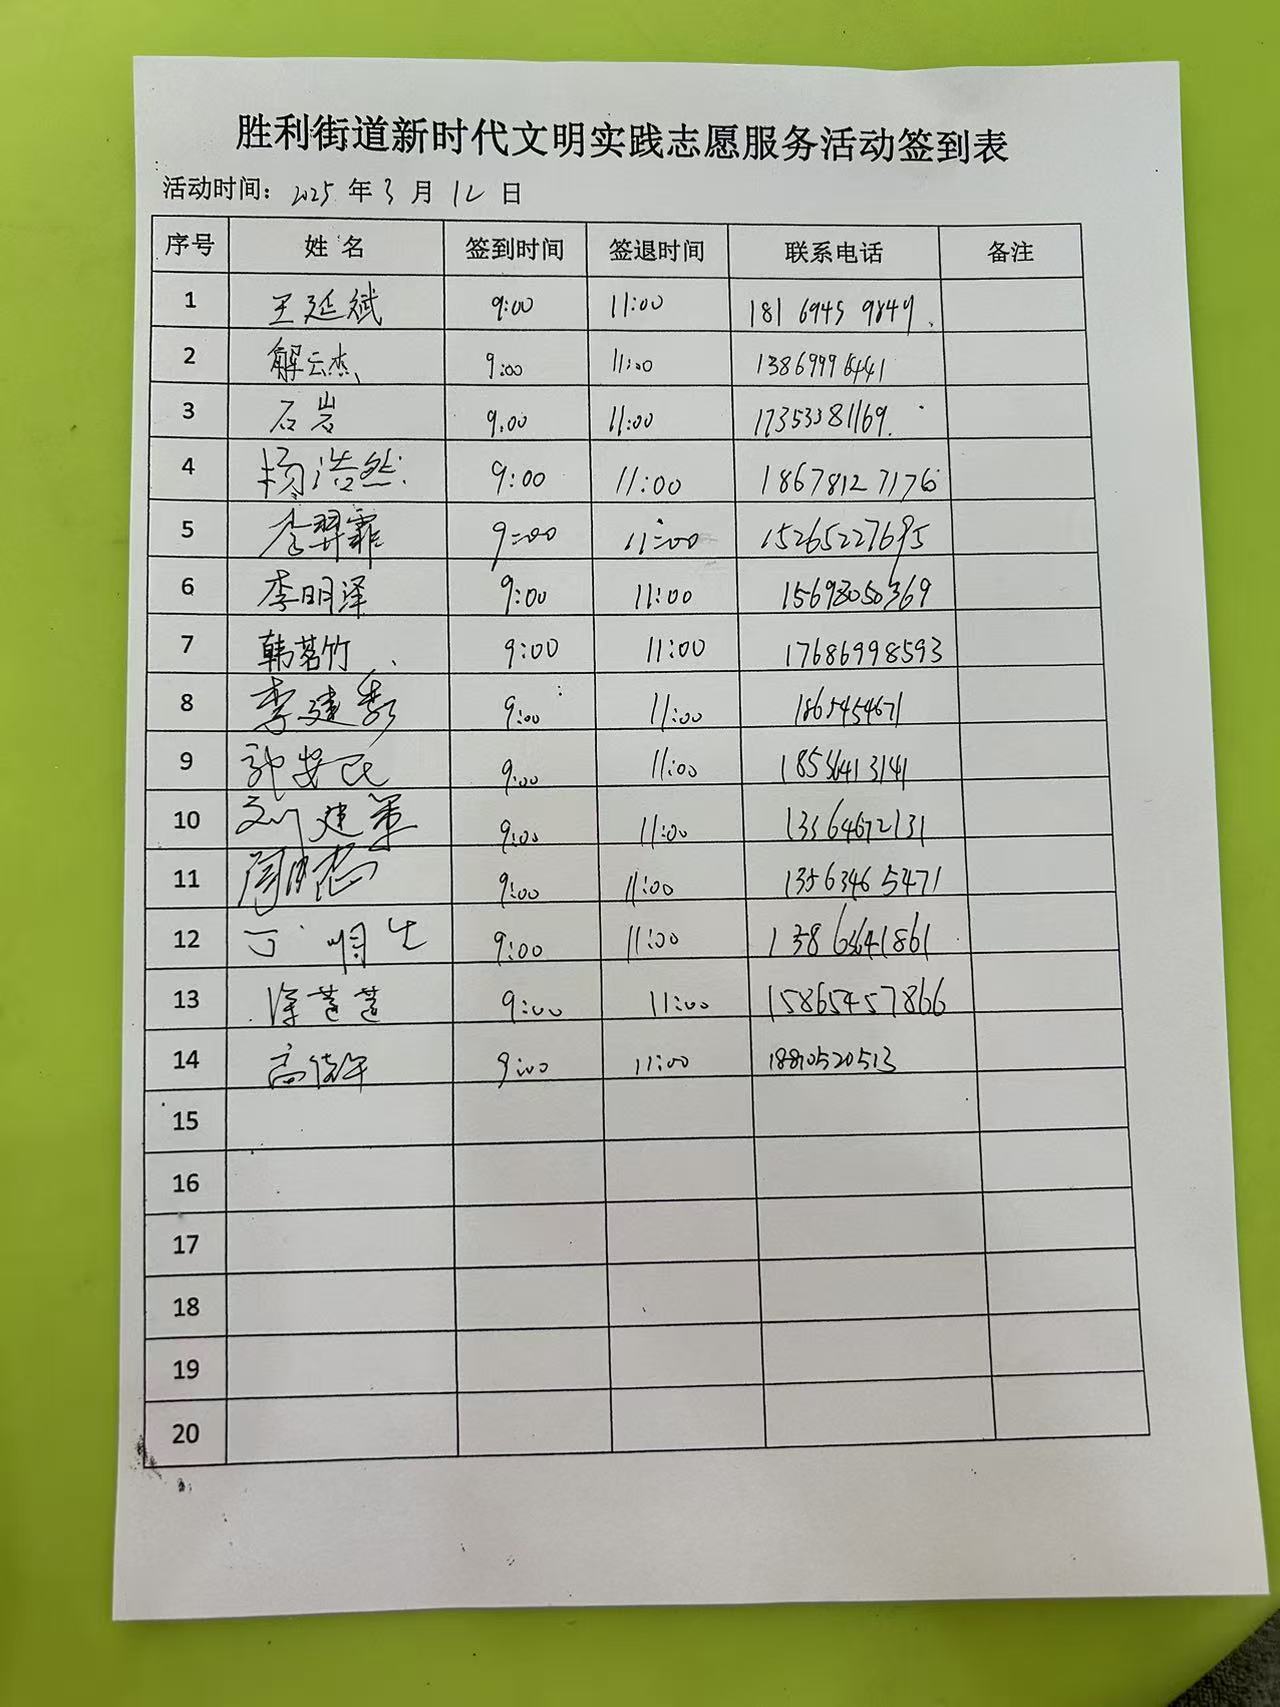 胜利街道新时代文明实践志愿服务活动签到表
活动时间：2025 年 3 月 12 日
序号 姓 名 签到时间 签退时间 联系电话 备注
1 王延斌 9:00 11:00 181 6945 9849
2 解云杰 9:00 11:00 13869996441
3 石岩 9:00 11:00 17353381169
4 杨浩然 9:00 11:00 18678127176
5 李羿霏 9:00 11:00 15265227695
6 李明泽 9:00 11:00 15698050369
7 韩茗竹 9:00 11:00 17686998593
8 李建秀 9:00 11:00 1865454671
9 9:00 11:00 18536413141
10 刘建军 9:00 11:00 13364672131
11 9:00 11:00 13563465471
12 丁明生 9:00 11:00
13 9:00 11:00 15865457866
14 9:00 11:00 18810520513
15
16
17
18
19
20